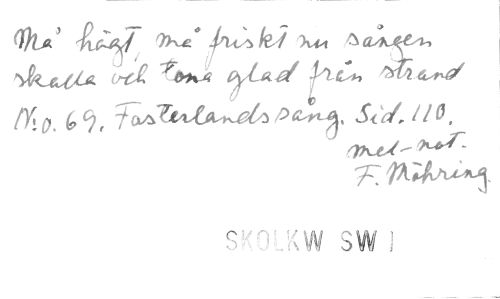 Må högt, må friskt nu sången
skalla och tona glad från strand
N:o. 69. Fosterlandssång. Sid. 110.
mel-not.
F. Möhring.
SKOLKW SW I